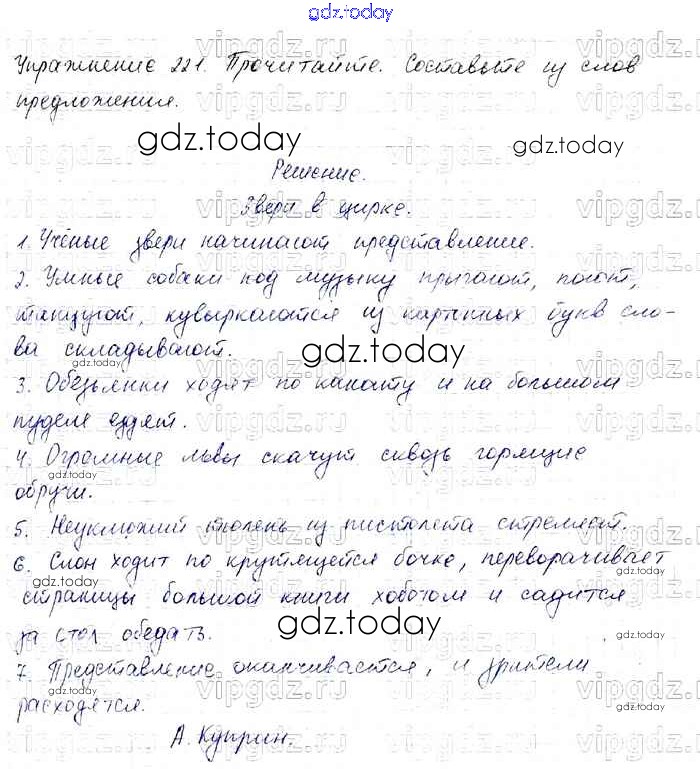 gdz.today
Упражнение 221. Прочитайте. Составьте из слов
предложения.
gdz.today
gdz.today
Решение.
Звери в цирке.
1. Учёные звери начинают представление.
2. Умные собаки под музыку прыгают, поют,
танцуют, кувыркаются из картонных букв сло-
ва складывают.
gdz.today
gdz.today
3. Обезьянки ходят по канату и на большом
пуделе ездят.
4. Огромные львы скачут сквозь горящие
gdz.today
обручи.
5. Неуклюжий тюлень из пистолета стреляет.
6. Слон ходит по крутящейся бочке, переворачивает
gdz.today
gdz.today
страницы большой книги хоботом и садится
за стол обедать.
gdz.today
gdz.today
7. Представление оканчивается, и зрители
расходятся.
gdz.today
gdz.today
А. Куприн.
vipgdz.ru